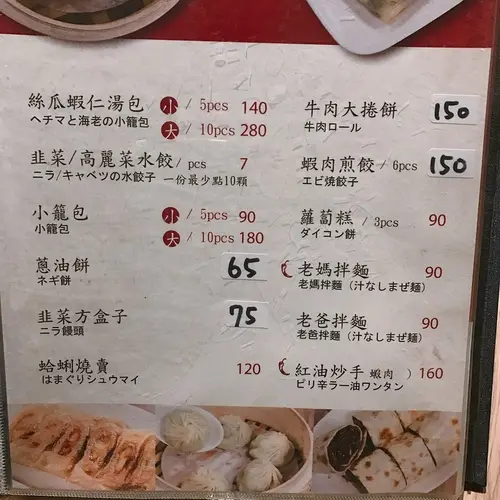 絲瓜蝦仁湯包 小 / 5pcs 140
ヘチマと海老の小籠包 大 / 10pcs 280
韭菜/高麗菜水餃/ pcs 7
ニラ/キャベツの水餃子 一份最少點10顆
小籠包 小 / 5pcs 90
小籠包 大 / 10pcs 180
蔥油餅 65
ネギ餅
韭菜方盒子 75
ニラ饅頭
蛤蜊燒賣 120
はまぐりシュウマイ
牛肉大捲餅 150
牛肉ロール
蝦肉煎餃 / 6pcs 150
エビ焼餃子
蘿蔔糕 / 3pcs 90
ダイコン餅
老媽拌麵 90
老媽拌麵（汁なしまぜ麺）
老爸拌麵 90
老爸拌麵（汁なしまぜ麺）
紅油炒手 蝦肉 ) 160
ピリ辛ラー油ワンタン